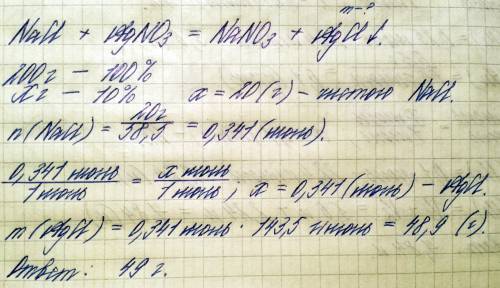 m-?
NaCl + AgNO3 = NaNO3 + AgCl↓.
200г — 100%
Xг — 10% x = 20 (г) - чистого NaCl.
n(NaCl) = 20г / 58,5 = 0,341 (моль).
0,341 моль / 1 моль = x моль / 1 моль ; x = 0,341 (моль) - AgCl.
m(AgCl) = 0,341 моль · 143,5 г/моль = 48,9 (г).
Ответ: 49 г.